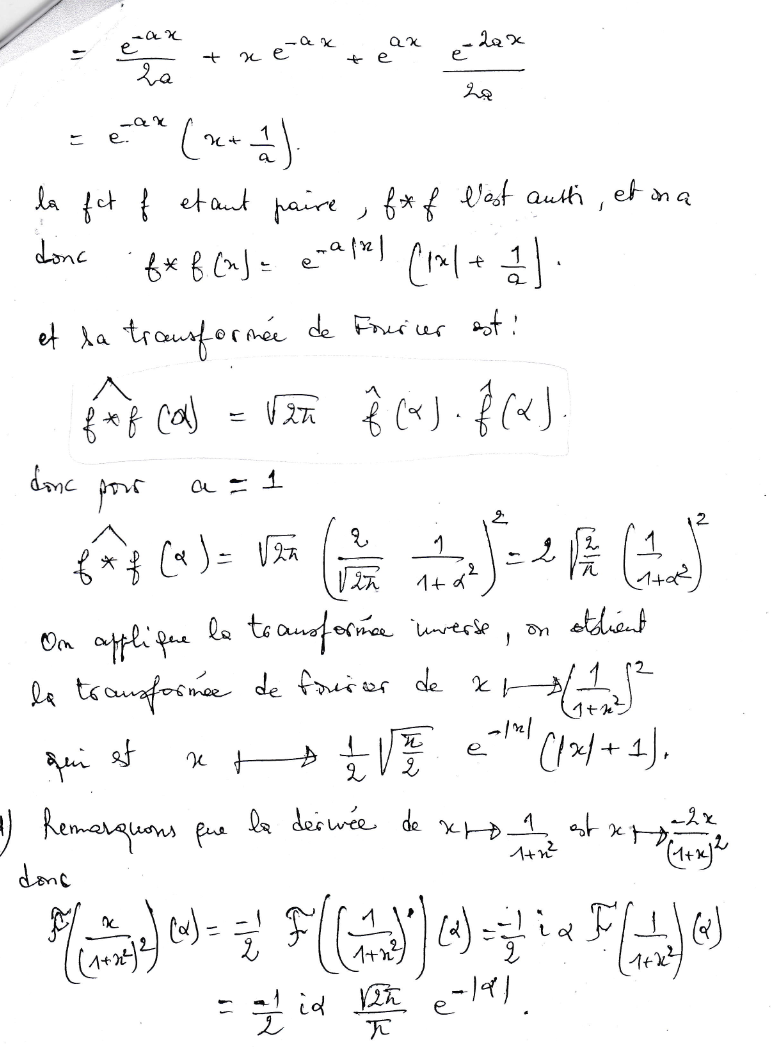 = e^{-ax}/2a + x e^{-ax} + e^{ax} e^{-2ax}/2a
= e^{-ax} (x + 1/a).
la fct f etant paire, f*f l'est aussi, et on a
donc f*f(x) = e^{-a|x|} (|x| + 1/a).
et sa transformée de Fourier est :
\widehat{f*f}(α) = √2π \hat{f}(α) . \hat{f}(α).
donc pour a = 1
\widehat{f*f}(α) = √2π (2/√2π 1/(1+α²))² = 2 √(2/π) (1/(1+α²))²
On applique la transformée inverse, on obtient
la transformée de fourier de x ↦ (1/(1+x²))²
qui est x ↦ 1/2 √(π/2) e^{-|x|} (|x| + 1).
) Remarquons que la derivée de x ↦ 1/(1+x²) est x ↦ -2x/(1+x)²
donc
F(x/(1+x²)²)(α) = -1/2 F((1/(1+x²))')(α) = -1/2 iα F(1/(1+x²))(α)
= -1/2 iα √2π/π e^{-|α|}.